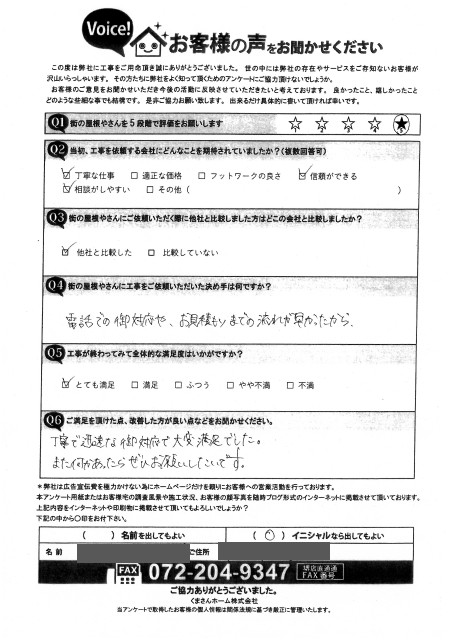 Voice!
お客様の声をお聞かせください
この度は弊社に工事をご用命頂き誠にありがとうございました。 世の中には弊社の存在やサービスをご存知ないお客様が
沢山いらっしゃいます。 その方たちに弊社をよく知って頂くためのアンケートにご協力頂けないでしょうか。
お客様のご意見をお聞かせいただき今後の活動に反映させていただきたいと考えております。 良かったこと、嬉しかったこと
どのような些細な事でも結構です。 是非ご協力お願い致します。 出来るだけ具体的に書いて頂ければ幸いです。
Q1 街の屋根やさんを5段階で評価をお願いします
1 2 3 4 5
Q2 当初、工事を依頼する会社にどんなことを期待されていましたか?(複数回答可)
☑丁寧な仕事 □適正な価格 □フットワークの良さ ☑信頼ができる
☑相談がしやすい □その他( )
Q3 街の屋根やさんにご依頼いただく際に他社と比較しました方はどこの会社と比較しましたか?
☑他社と比較した □比較していない
Q4 街の屋根やさんに工事をご依頼いただいた決め手は何ですか?
電話での御対応や、お見積もりまでの流れが早かたから、
Q5 工事が終わってみて全体的な満足度はいかがですか?
☑とても満足 □満足 □ふつう □やや不満 □不満
Q6 ご満足を頂けた点、改善した方が良い点などをお聞かせください。
丁寧で迅速な御対応で大変満足でした。
また何かあったらぜひお願いしたいです。
*弊社は広告宣伝費を極力かけない為にホームページだけを頼りにお客様への営業活動を行っております。
本アンケート用紙またはお客様宅の調査風景や施工状況、お客様の顔写真を随時ブログ形式のインターネットに掲載させて頂いております。
上記内容をインターネットや印刷物に掲載させて頂いてもよろしいでしょうか?
下記の中から〇印をお付下さい。
( )名前を出してもよい (○)イニシャルなら出してもよい
名前 ご住所
FAX 072-204-9347 堺店直通
FAX番号
ご協力ありがとうございました。
くまさんホーム株式会社
当アンケートで取得したお客様の個人情報は関係法規に基づき厳正に管理いたします。